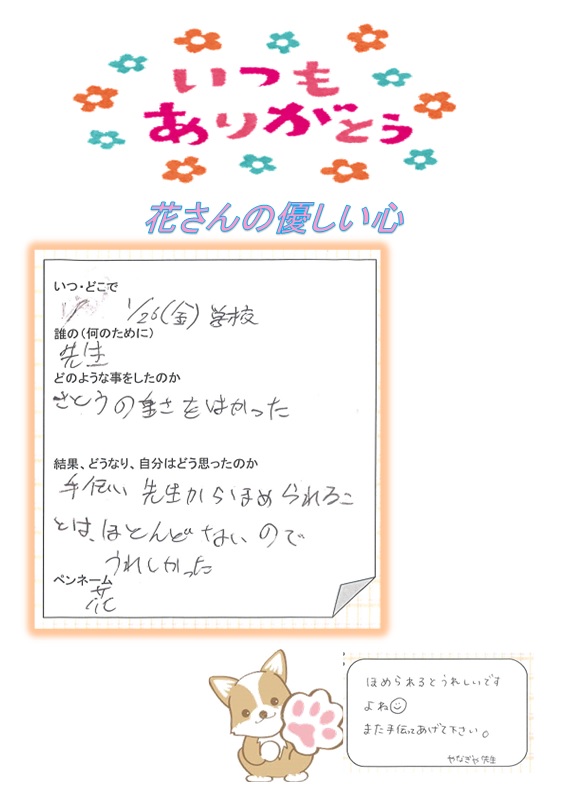 いつも
ありがとう
花さんの優しい心
いつ・どこで
1/26(金) 学校
誰の(何のために)
先生
どのような事をしたのか
さとうの重さをはかった
結果、どうなり、自分はどう思ったのか
手伝い 先生からほめられるこ
とは、ほとんどないので
うれしかった
ペンネーム
花
ほめられるとうれしいです
よね
また手伝ってあげて下さい。
やなぎや先生